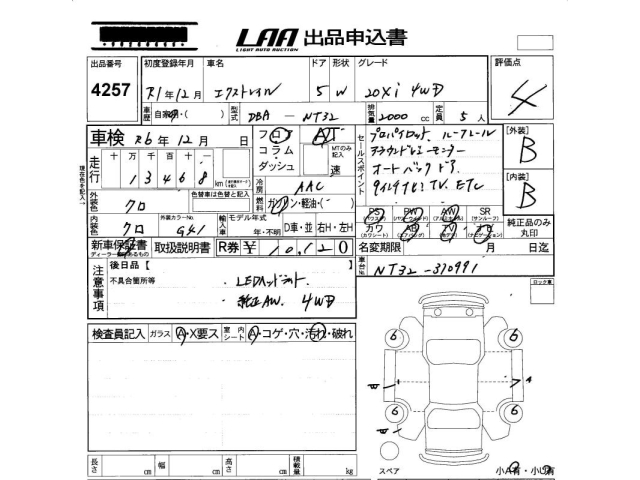 LAA 出品申込書
LIGHT AUTO AUCTION
出品番号 初度登録年月 車名 ドア 形状 グレード 評価点
4257 R1年12月 エクストレイル 5 W 20Xi 4WD 4
車歴 自家用・( ) 型式 DBA - NT32 排気量 2000 cc 定員 5 人
車検 R6年 12月 日 フロア AT
コラム
ダッシュ
MTのみ記入
速
セールスポイント
プロパイロット ルーフレール
アラウンドビューモニター
オートバックドア
TV ETC
[外装]
B
[内装]
B
現在色を記入
走行 十万 万 千 百 十 一
1 3 4 6 8 km
冷房 AAC
外装色 クロ 色替車は色替と記入
燃料 ガソリン・軽油・( )
PS PW AW SR
カワ AB TV ナビ
純正品のみ丸印
内装色 クロ 外装カラーNo. G41 輸入車 モデル年式 年・不明 D車・並 右H・左H
新車保証書 取扱説明書 R券 ¥ 10,120 名変期限 月 日迄
ディーラー記録あるもの
車台No. NT32-370991
注意事項
後日品【
不具合箇所等
・LEDヘッドライト
・純正AW. 4WD
ロック車
検査員記入 ガラス A・X要ス 室内シート A・コゲ・穴・汚れ・破れ
6 6
6 6
長さ cm 幅 cm 高さ cm 積載量 kg
スペア 小A有・小U有